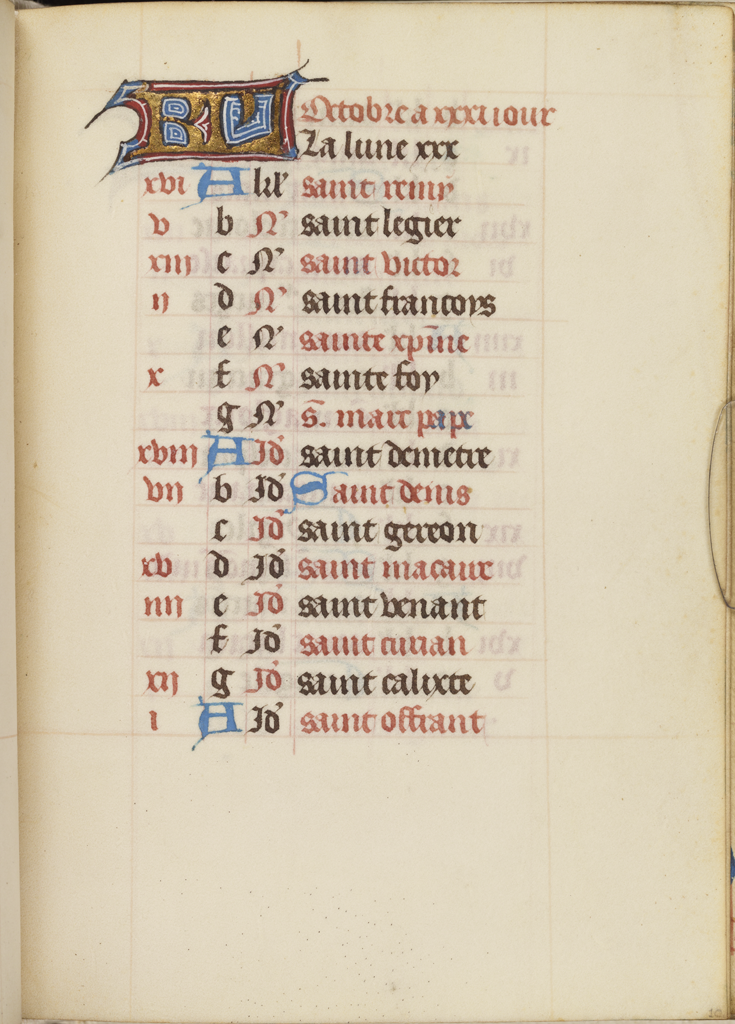 KL Octobre a xxxi iour
La lune xxx
xvi A kl' saint remy
v b N' saint legier
xiii c N' saint victor
ii d N' saint francoys
e N' sainte xp̄ine
x f N' sainte foy
g N' s̄. marc pape
xviii A Id' saint demetre
vii b Id' Saint denis
c Id' saint gereon
xv d Id' saint macaire
iiii e Id' saint venant
f Id' saint curian
xii g Id' saint calixte
i A Id' saint offrant